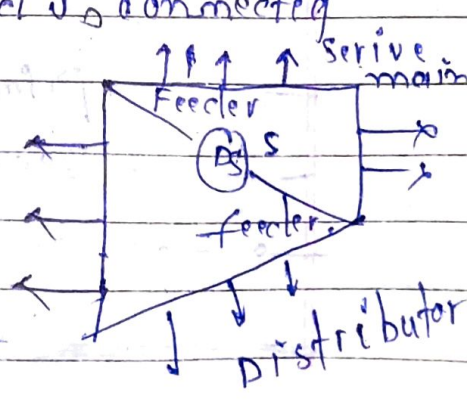 connected
Serive
main
Feeder
Ds S
feeder.
Distributor